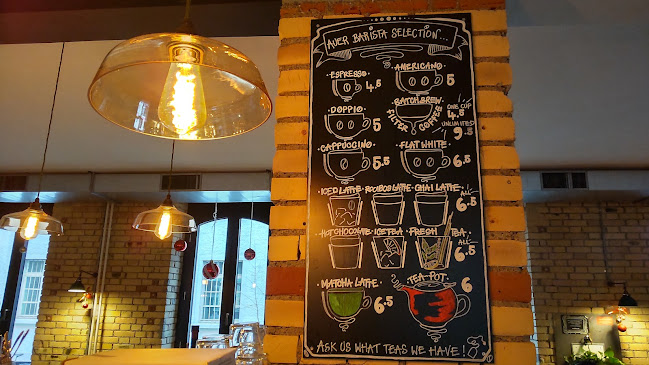 AUER BARISTA SELECTION...
ESPRESSO 4.5
AMERICANO 5
DOPPIO 5
BATCH BREW FILTER COFFEE ONE CUP 4.5 UNLIMITED 9.5
CAPPUCCINO 5.5
FLAT WHITE 6.5
ICED LATTE · ROOIBOS LATTE · CHAI LATTE ALL 6.5
HOT CHOCOLATE · ICE TEA · FRESH TEA ALL 6.5
MATCHA LATTE 6.5
TEA POT 6
ASK US WHAT TEAS WE HAVE!